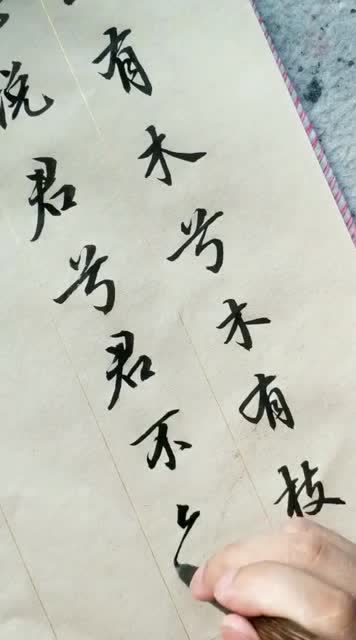 有木兮木有枝
悦君兮君不